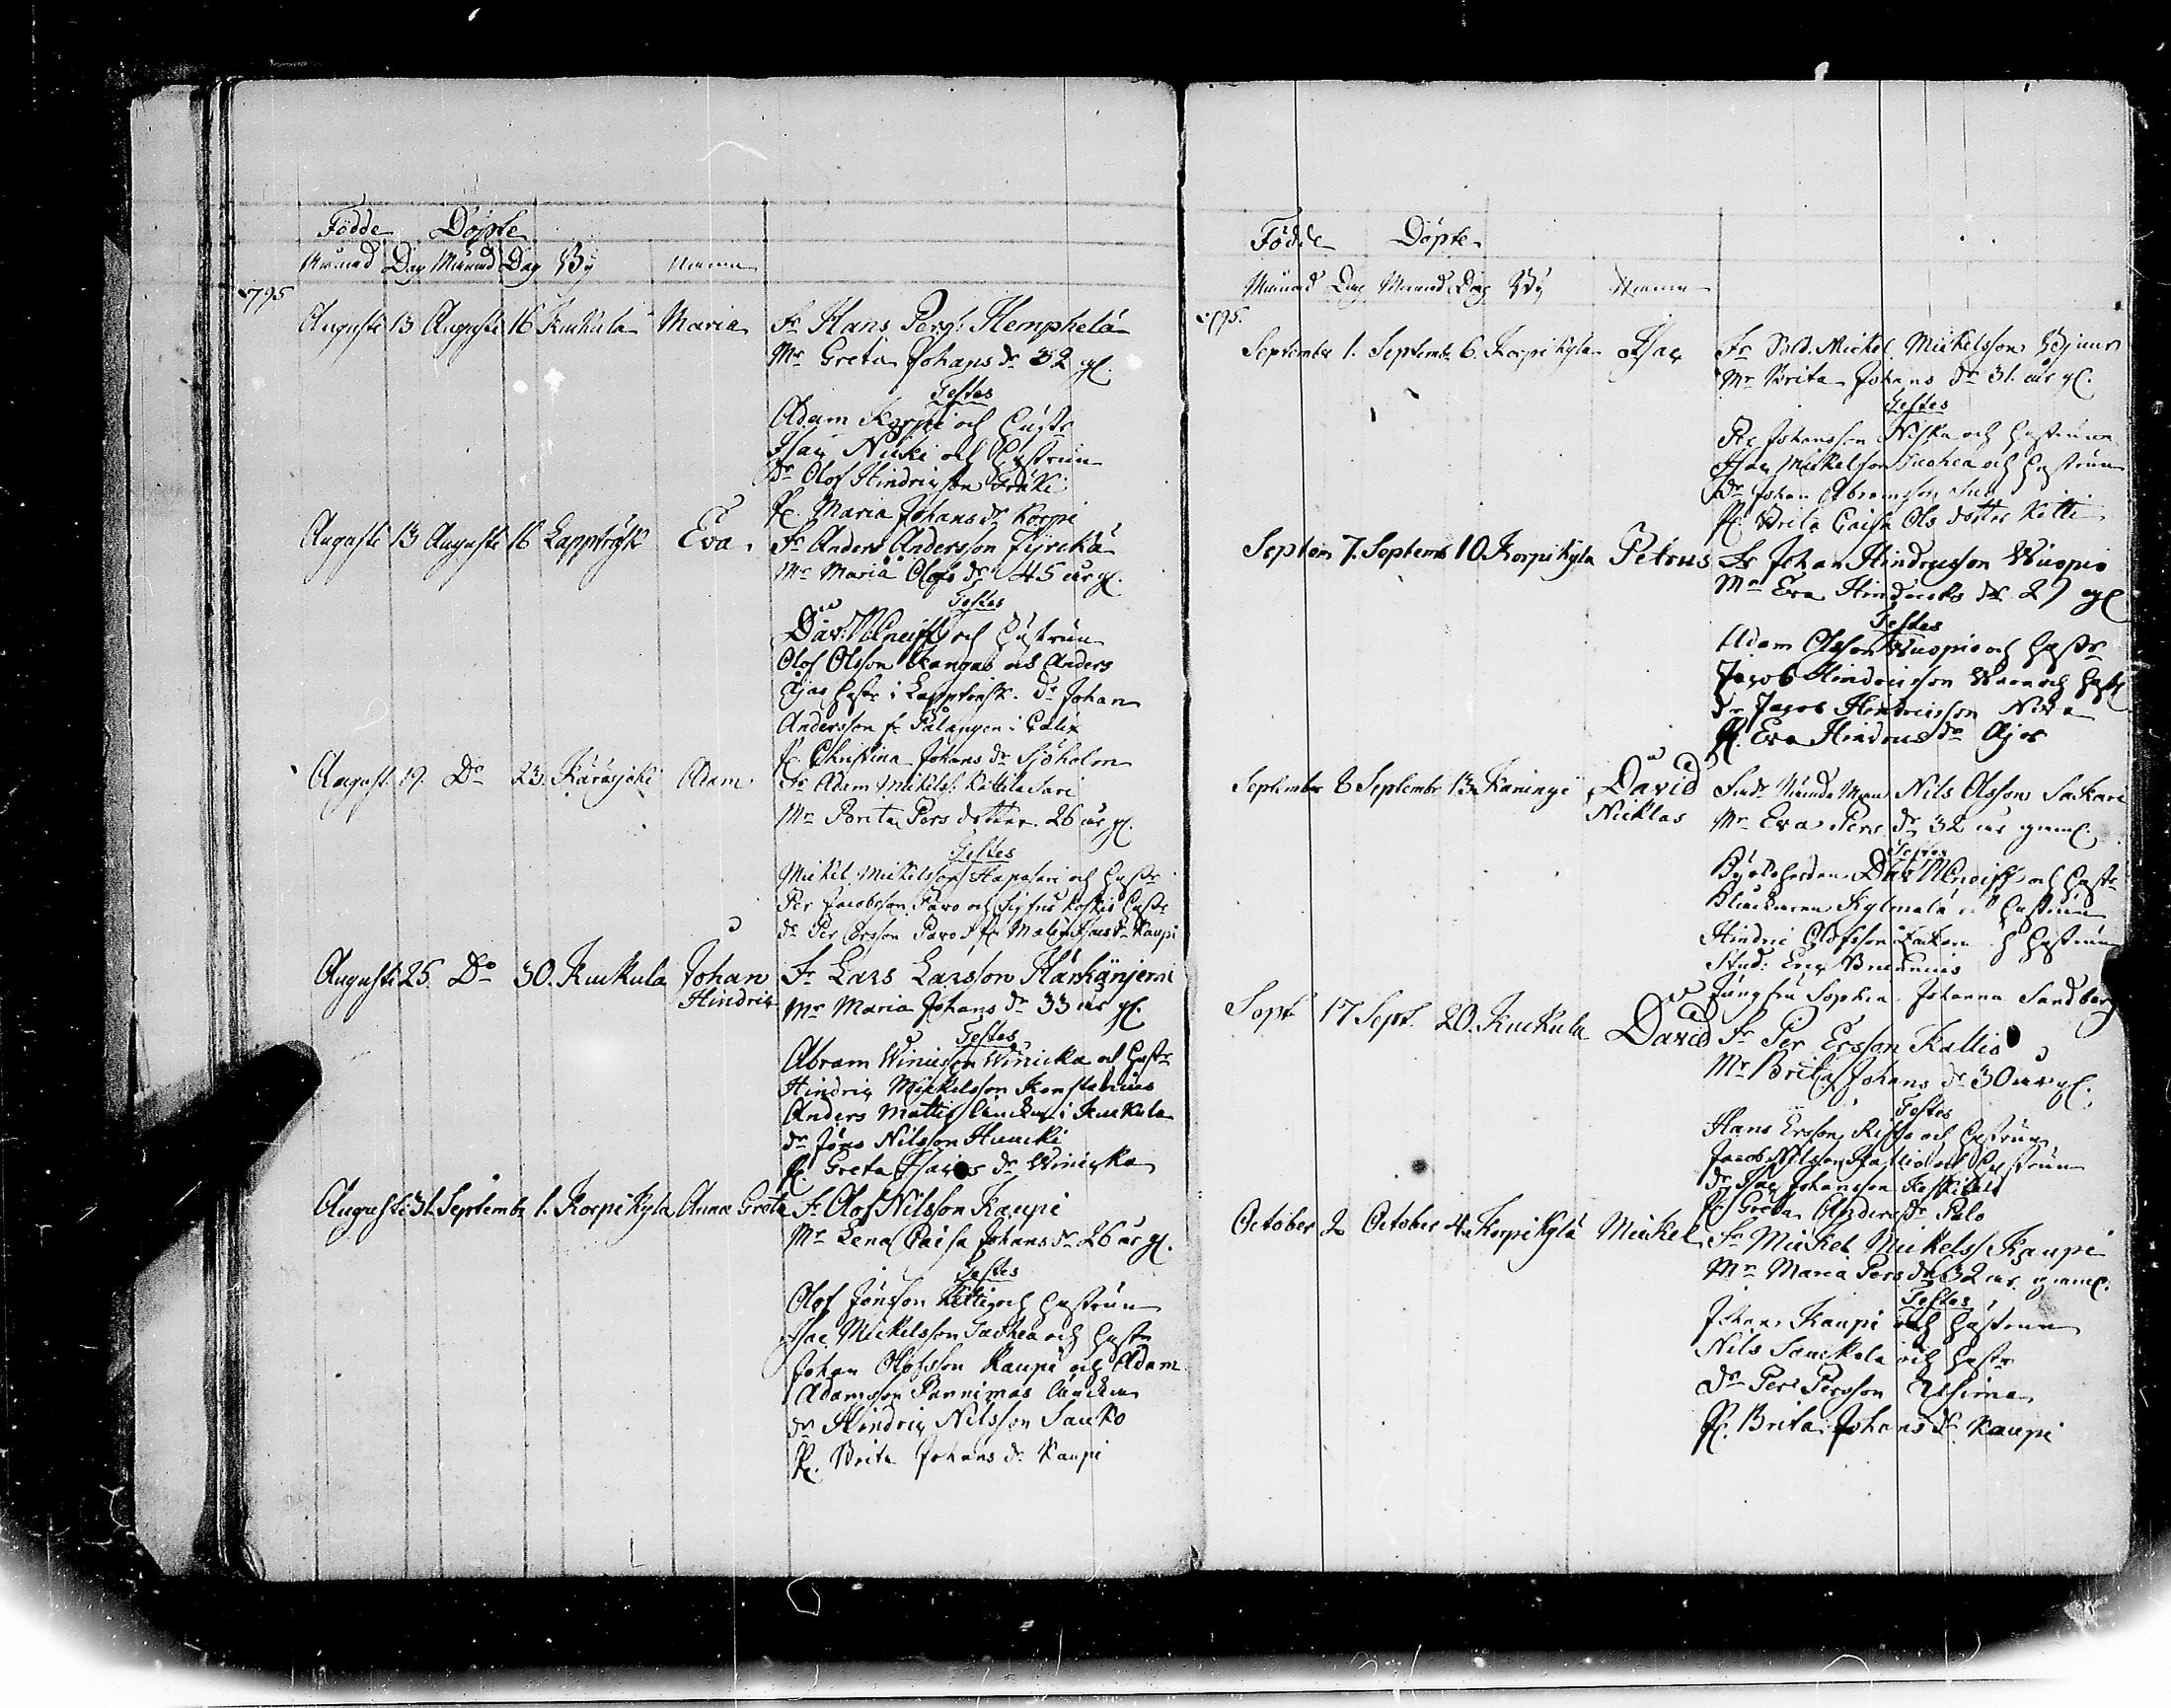 Födde Döpte
Månad Dag Månad Dag By Namn
1795
Augusti 13 Augusti 16 Kuckula Maria Fr Hans Pers: Hemphelä
Mr Greta Johans dr 32 gl.
Testes
Adam Korpi och Hustr
Isac Niski och Hustrun
Dr Olof Hindricsson
P. Maria Johans dr Korpi
Augusti 13 Augusti 16 Lappträsk Eva Fr Anders Andersson
Mr Maria Olofs dr 45 år gl.
Testes
Dav: och Hustrun
Olof Olsson Kangas och Anders
Hustr i Lappträsk. Dr Johan
Andersson fr Pålängen i Calix
P. Christina Johans dr Sjöholm
August. 19. Do 23. Karasjoki Adam Fr Adam Mickels: Kattilasari
Mr Brita Pers dotter 26 år gl.
Testes
Mickel Mickelsson och Hustr
Per Jacobsson Pavo och Hustr
dr Per Ersson Pavo P. dr Kaupi
Augusti 25 Do 30. Kuckula Johan Hindric Fr Lars Larsson
Mr Maria Johans dr 33 år gl.
Testes
Abram Winicka och Hustr
Hindric Mickelsson
Anders i Kuckula
dr Jöns Nilsson Huucki
P. Greta Isacs dr Winicka
Augusti 31. Septembr 1. Korpikyla Anna Greta Fr Olof Nilsson Kaupi
Mr Lena Caisa Johans dr 26 år gl.
Testes
Olof Jönsson Kitti och Hustrun
Isac Mickelsson och Hustr
Johan Olofsson Kaupi och Adam
Adamsson
dr Hindric Nilsson Sauko
P. Brita Johans dr Kaupi
Födde Döpte
Månad Dag Månad Dag By Namn
1795.
September 1. Septemb. 6. Korpikyla Isac Fr Sold. Mickel Mickelsson Bjur
Mr Brita Johans dr 31. år gl.
Testes
Per Johansson Niska och Hustrun
Isac Mickelsson och Hustrun
Dr Johan Abramsson
P. Brita Caisa Ols dotter Kitti
Septem 7. Septemb 10. Korpikyla Petrus Fr Johan Hindricsson Wuopio
Mr Eva Hindricks dr 27 gl
Testes
Adam Olsson Wuopio och Hustr
Jacob Hindricsson och Hustr
dr Jacob Hindricsson Niva
P. Eva Hindrics dr Ajos
September 8 Septembr 13 Karungi David Nicklas Fadr Nämndeman Nils Olsson
Mr Eva Pers dr 32 år gaml.
Testes
Dav och Hustr
Kylmälä Hustrun
Hindric Olofsson Hustrun
Stud: Eric
Jungfru Sophia Johanna Sandberg
Sept 17 Sept. 20. Kuckula David Fr Per Ersson Kallio
Mr Brita Johans dr 30 år gl.
Testes
Hans Ersson och Hustrun
Jacob Nilsson och Hustrun
dr Isac Johansson
P. Greta Anders dr Palo
October 2 October 4. Korpikylä Mickel Fr Mickel Mickelss. Kaupi
Mr Maria Pers dr 32 år gaml.
Testes
Johan Kaupi och Hustrun
Nils och Hustr
Dr Per Persson
P. Brita Johans dr Kaupi